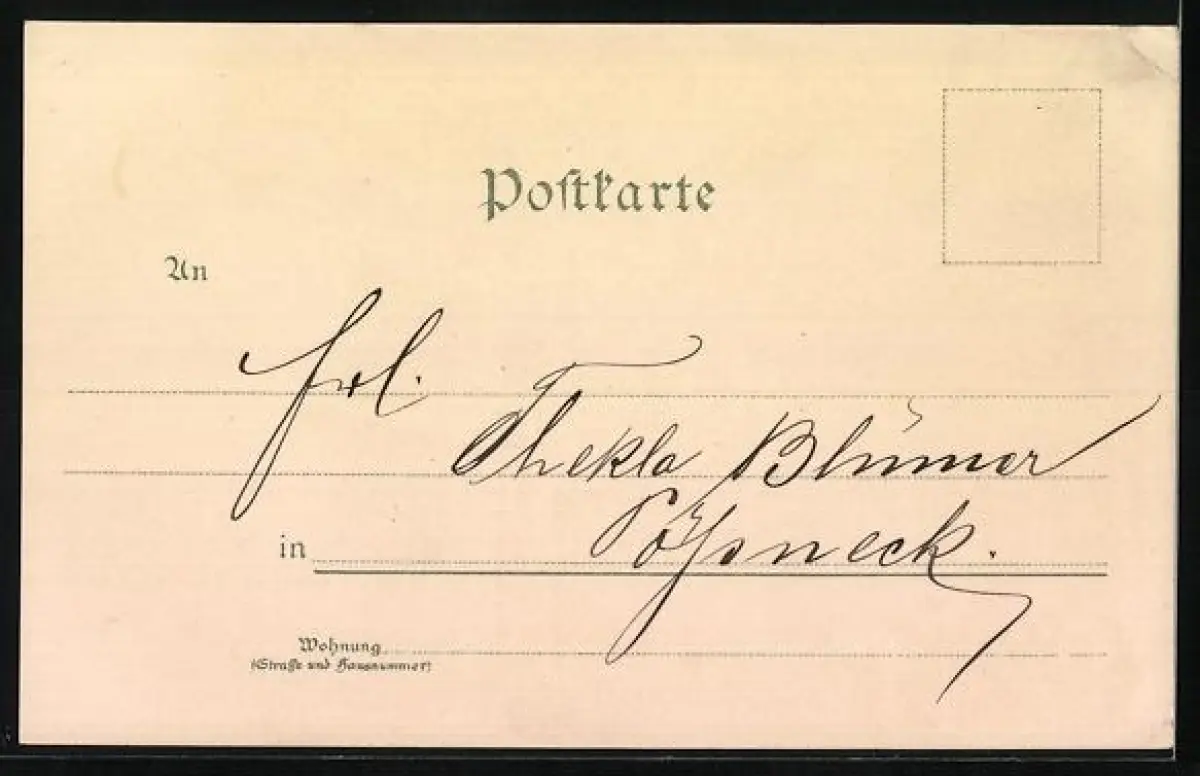 Postkarte
An
Frl.
Thekla Blümer
in Pößneck.
Wohnung
(Straße und Hausnummer)